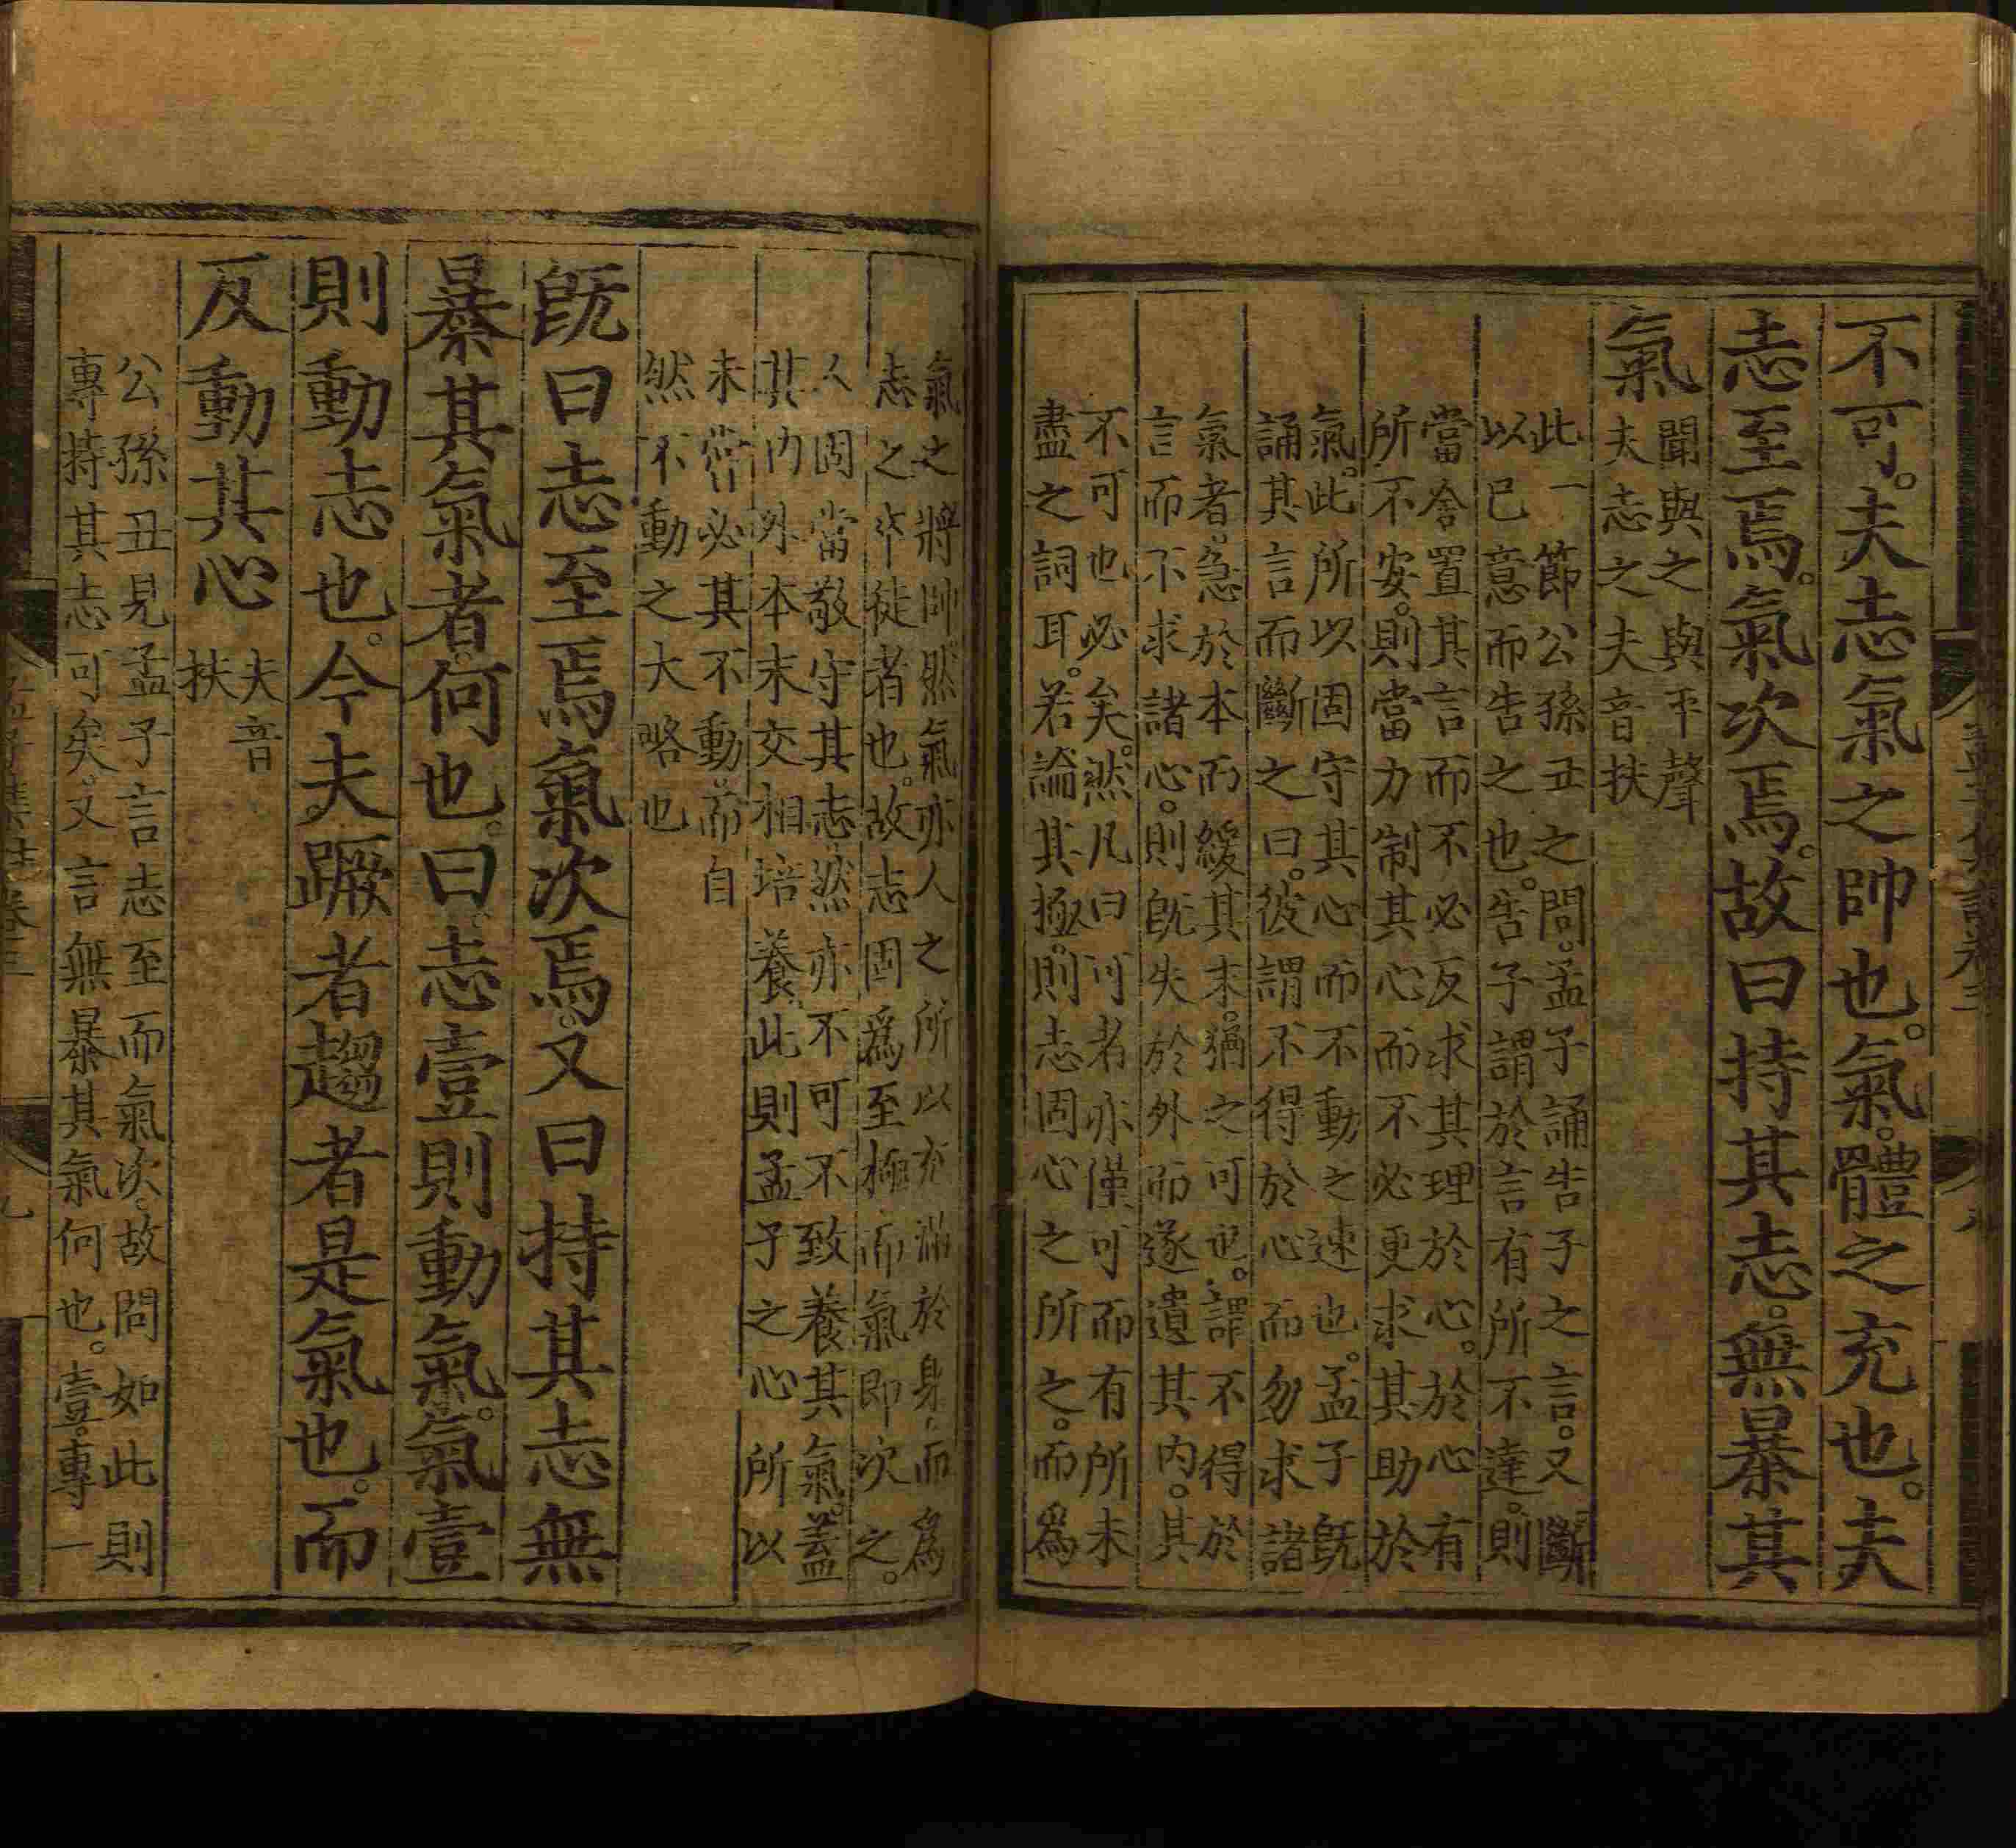 不可。夫志氣之帥也。氣。體之充也。夫
志至焉。氣次焉。故曰持其志。無暴其
氣
聞與之與平聲
夫志之夫音扶
此一節公孫丑之問。孟子誦告子之言。又斷
以己意而告之也。告子謂於言有所不達。則
當舍置其言而不必反求其理於心。於心有
所不安。則當力制其心而不必更求其助於
氣。此所以固守其心而不動之速也。孟子既
誦其言而斷之曰。彼謂不得於心而勿求諸
氣者。急於本而緩其末。猶之可也。謂不得於
言而不求諸心。則既失於外而遂遺其內。其
不可也必矣。然凡曰可者亦僅可而有所未
盡之詞耳。若論其極。則志固心之所之。而爲
氣之將帥。然氣亦人之所以充滿於身。而爲
志之卒徒者也。故志固爲至極。而氣即次之。
人固當敬守其志。然亦不可不致養其氣。蓋
其內外本末交相培養。此則孟子之心所以
未嘗必其不動。而自
然不動之大略也
既曰志至焉氣次焉。又曰持其志無
暴其氣者。何也。曰。志壹則動氣。氣壹
則動志也。今夫蹶者趨者是氣也。而
反動其心
夫音
扶
公孫丑見孟子言志至而氣次。故問如此則
專持其志可矣。又言無暴其氣何也。壹。專一
孟子集註卷三
九